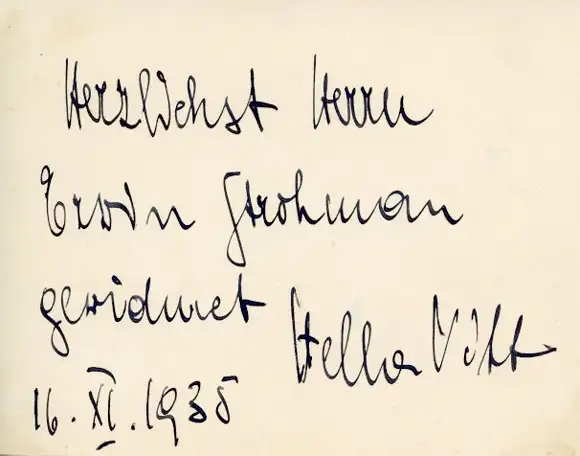 Herzlichst Herrn
Erwin Strohman
gewidmet Hella Pitt
16. XI. 1935